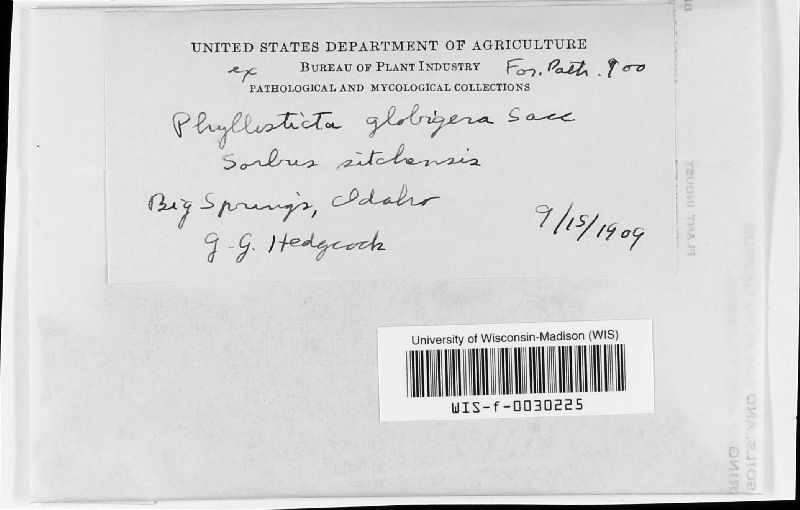 UNITED STATES DEPARTMENT OF AGRICULTURE
ex BUREAU OF PLANT INDUSTRY For. Path. 900
PATHOLOGICAL AND MYCOLOGICAL COLLECTIONS
Phyllosticta globigera Sacc
Sorbus sitchensis
Big Springs, Idaho
9/15/1909
G. G. Hedgcock
University of Wisconsin-Madison (WIS)
WIS-f-0030225
PLANT INDUST
SOILS, AND
RING